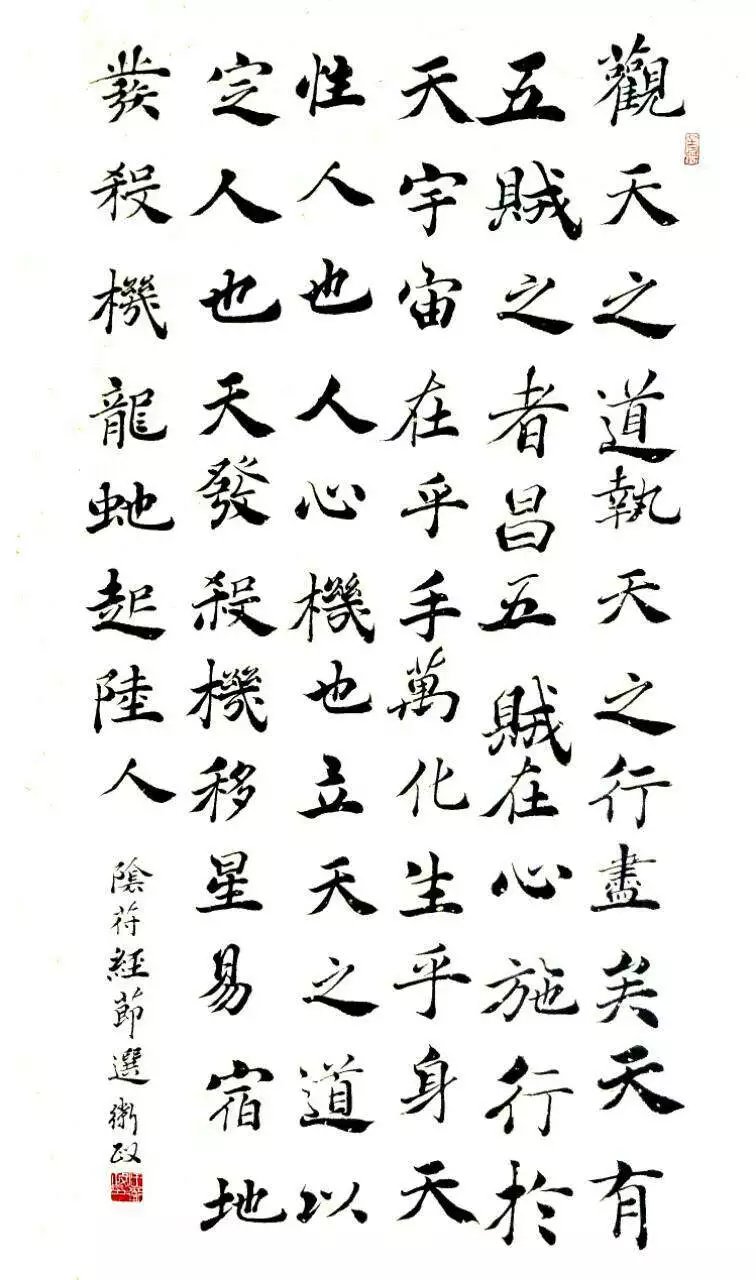 觀天之道執天之行盡矣天有
五賊之者昌五賊在心施行於
天宇宙在乎手萬化生乎身天
性人也人心機也立天之道以
定人也天發殺機移星易宿地
發殺機龍虵起陸人
陰符經節選衛政